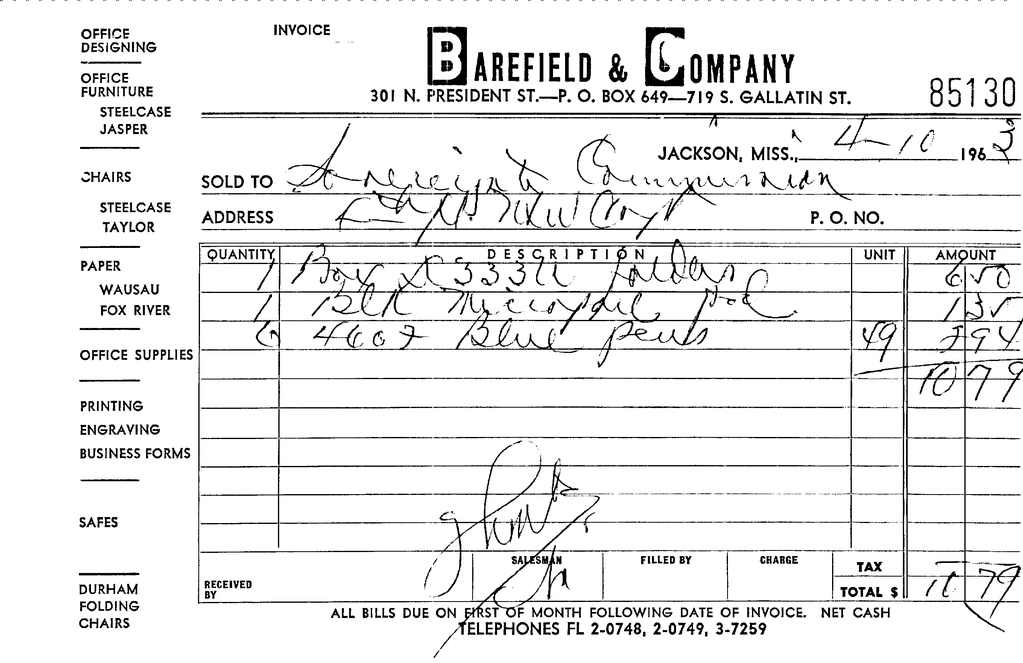 INVOICE
BAREFIELD & COMPANY
301 N. PRESIDENT ST.—P. O. BOX 649—719 S. GALLATIN ST.
85130
JACKSON, MISS., 4-10 1963
SOLD TO Sovereignty Commission
ADDRESS
P. O. NO.
QUANTITY DESCRIPTION UNIT AMOUNT
1 Box 333 folders 6 50
1 Blk 1 35
6 4607 Blue pens 49 2 94
10 79
RECEIVED BY
SALESMAN FILLED BY CHARGE
TAX
TOTAL $ 10 79
ALL BILLS DUE ON FIRST OF MONTH FOLLOWING DATE OF INVOICE. NET CASH
TELEPHONES FL 2-0748, 2-0749, 3-7259
OFFICE
DESIGNING
OFFICE
FURNITURE
STEELCASE
JASPER
CHAIRS
STEELCASE
TAYLOR
PAPER
WAUSAU
FOX RIVER
OFFICE SUPPLIES
PRINTING
ENGRAVING
BUSINESS FORMS
SAFES
DURHAM
FOLDING
CHAIRS